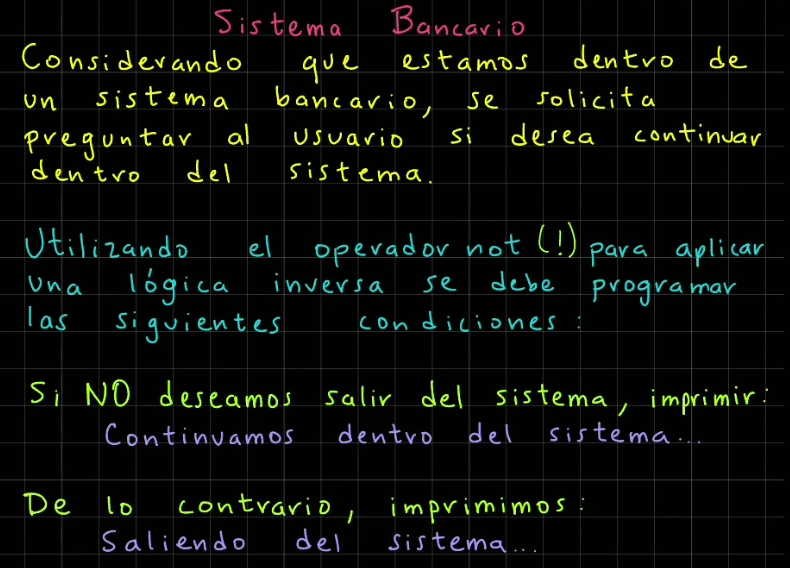 Sistema Bancario
Considerando que estamos dentro de
un sistema bancario, se solicita
preguntar al usuario si desea continuar
dentro del sistema.
Utilizando el operador not (!) para aplicar
una lógica inversa se debe programar
las siguientes condiciones:
Si NO deseamos salir del sistema, imprimir:
Continuamos dentro del sistema...
De lo contrario, imprimimos:
Saliendo del sistema...